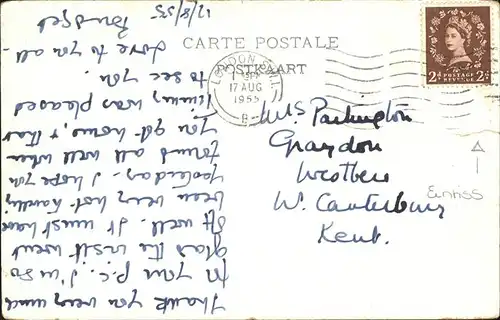 17/8/55
Thank you very much
for your p.c. I'm so
glad the visit went
off well. It must have
been very hot travelling
yesterday. I hope you
found all well when
you got home, & that
Timmy was pleased
to see you.
Love to you all -
Bridget
CARTE POSTALE
POSTKAART
LONDON
17 AUG
1955
B
2d POSTAGE REVENUE 2d
Mrs Partington
Graydon
Westbere
Nr. Canterbury
Kent.